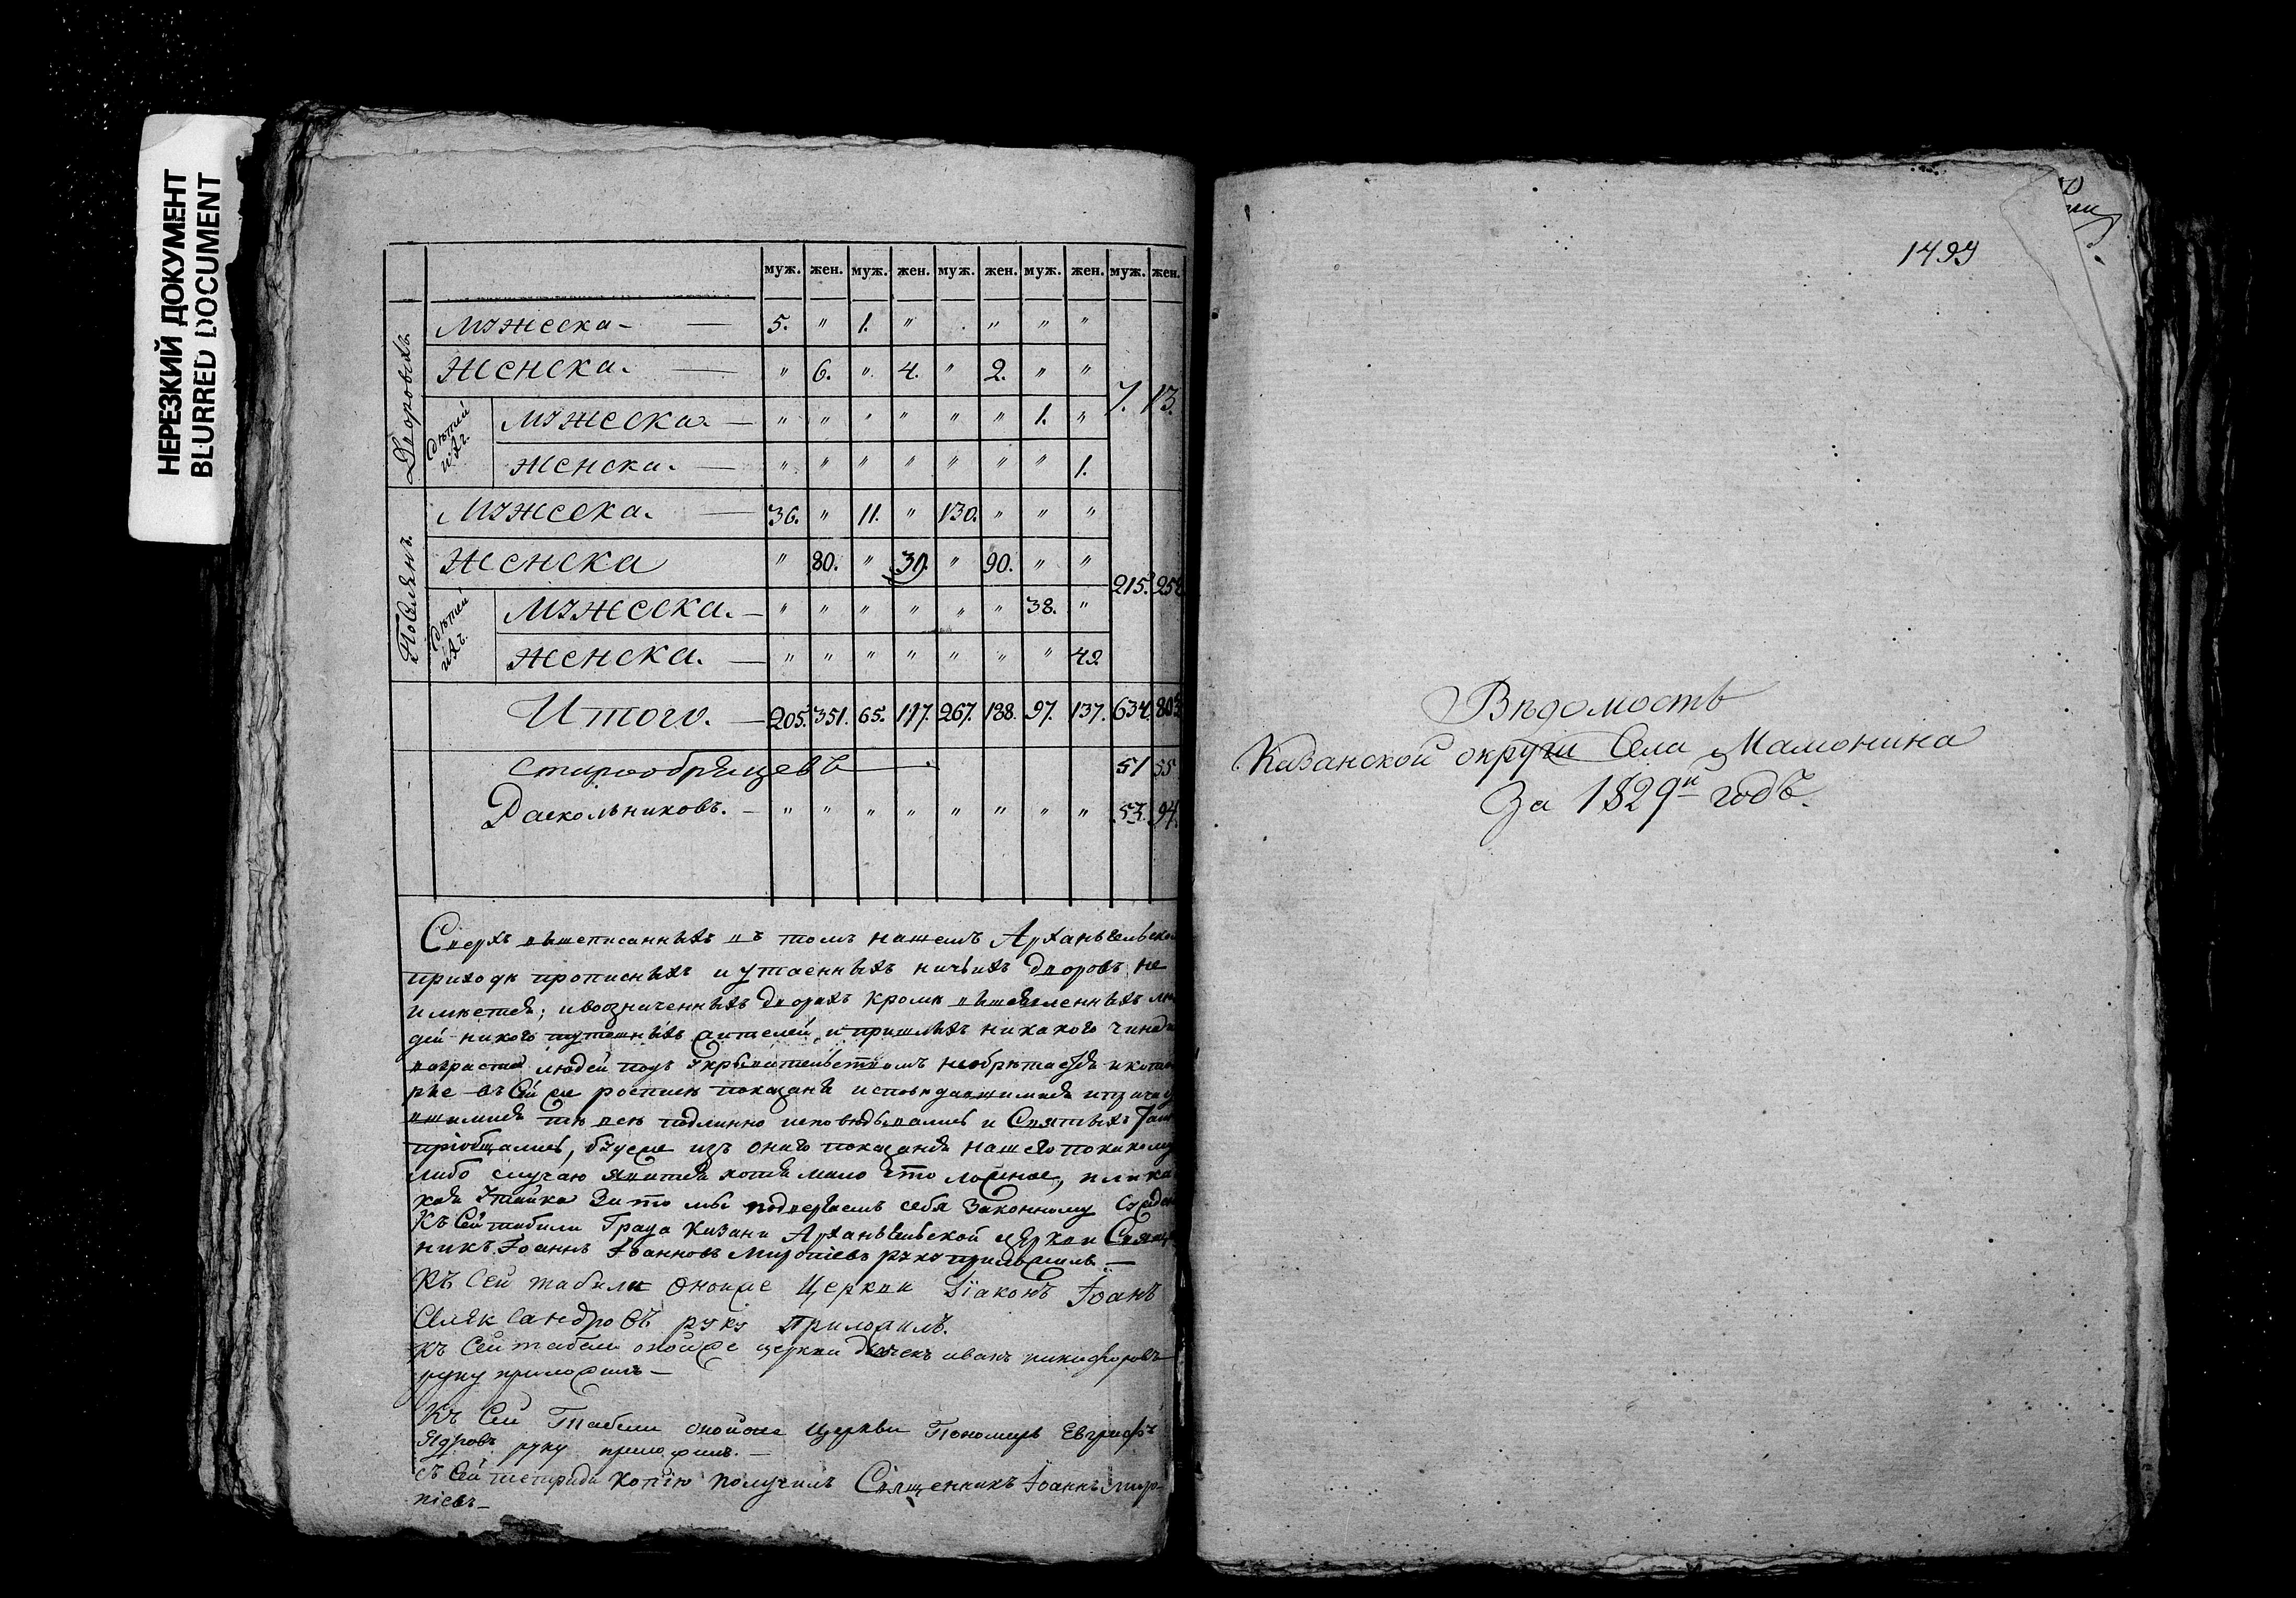 НЕРЕЗКИЙ ДОКУМЕНТ
BLURRED DOCUMENT
муж. жен. муж. жен. муж. жен. муж. жен. муж. жен.
Дворовыхъ
Мужеска — 5. " 1. " . " " "
Женска. — " 6. " 4. " 2. " " 7. 13.
дѣтей ихъ.
Мужеска. — " " " " " " 1. "
Женска. — " " " " " " " 1.
Поселянъ
Мужеска. — 36. " 11. " 130. " " "
Женска " 80. " " 90. " " 215.
дѣтей ихъ.
Мужеска. — " " " " " " 38. "
Женска. — " " " " " " "
Итого. — 205. 351. 65. 267. 97. 137. 634.
Старообрядцевъ — 51 55
Раскольниковъ. — " " " " " " " " 53. 94.
Сверхъ вышеписанныхъ въ томъ нашемъ
приходѣ прописныхъ и утаенныхъ ничьихъ дворовъ не
имѣется; и въ означенныхъ дворахъ кромѣ
никого и пришлыхъ никакого чина и
возраста людей подъ не обрѣтается и
въ сей же росписи показаны исповѣдавшимися и
тѣ всѣ подлинно исповѣдывались и Святыхъ
пріобщались, буде же изъ онаго показанія нашего по какому
либо случаю явится хотя мало что ложное, или
утайка за то мы подвергаемъ себя законному
Къ сей табели Града Казани Архангельской церкви
никъ Іоаннъ Іоанновъ руку приложилъ. —
Къ сей табели оной же церкви Діаконъ Іоанъ
Александровъ руку приложилъ.
Къ сей табели оной же церкви дьячекъ иванъ никифоровъ
руку приложилъ —
Къ сей Табели оной же церкви Пономарь Евграфъ
руку приложилъ. —
съ сей тетради копію получилъ Священникъ Іоаннъ
1499
Вѣдомость
Казанской округи Села Мамонина
За 1829й годъ.